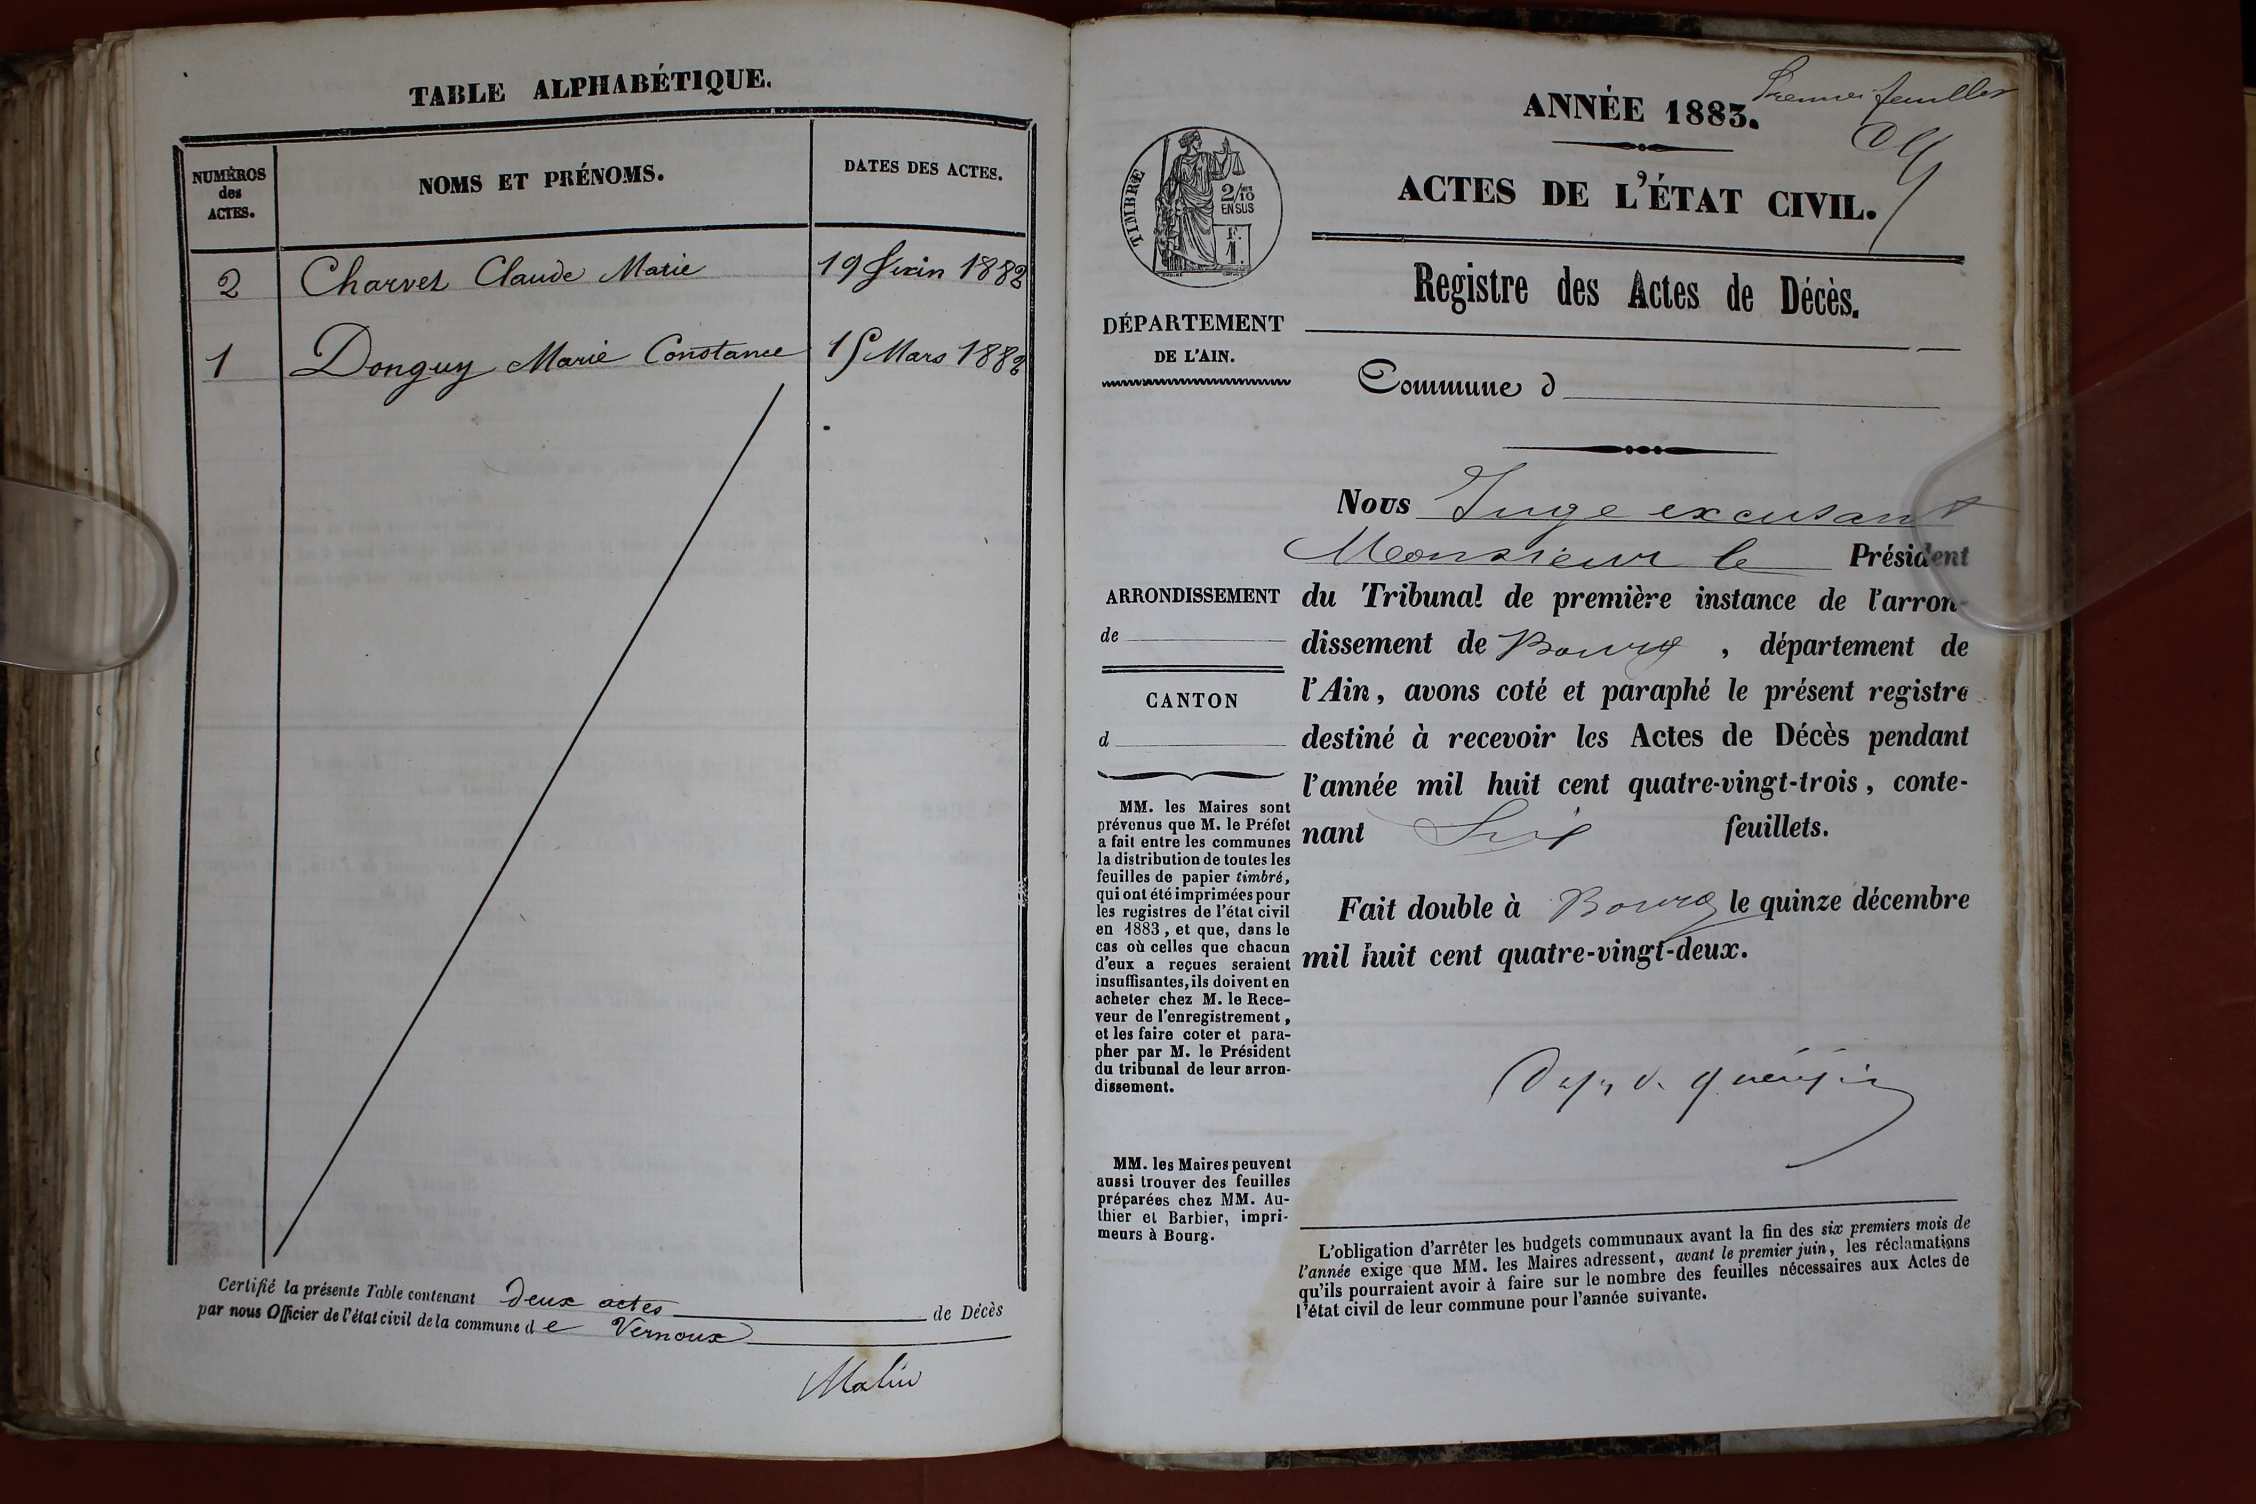 TABLE ALPHABÉTIQUE.
NUMÉROS
des
ACTES.
NOMS ET PRÉNOMS.
DATES DES ACTES.
2 Charvet Claude Marie 19 Juin 1882
1 Donguy Marie Constance 15 Mars 1882
Certifié la présente Table contenant deux actes de Décès
par nous Officier de l'état civil de la commune de Vernoux
ANNÉE 1883.
Premier feuillet
ACTES DE L'ÉTAT CIVIL.
TIMBRE
2/10
EN SUS
F.
1.
Registre des Actes de Décès.
DÉPARTEMENT
DE L'AIN.
Commune d
Nous Juge excusant
Monsieur le Président
du Tribunal de première instance de l'arron-
dissement de Bourg, département de
l'Ain, avons coté et paraphé le présent registre
destiné à recevoir les Actes de Décès pendant
l'année mil huit cent quatre-vingt-trois, conte-
nant Six feuillets.
Fait double à Bourg le quinze décembre
mil huit cent quatre-vingt-deux.
ARRONDISSEMENT
de
CANTON
d
MM. les Maires sont
prévenus que M. le Préfet
a fait entre les communes
la distribution de toutes les
feuilles de papier timbré,
qui ont été imprimées pour
les registres de l'état civil
en 1883, et que, dans le
cas où celles que chacun
d'eux a reçues seraient
insuffisantes, ils doivent en
acheter chez M. le Rece-
veur de l'enregistrement,
et les faire coter et para-
pher par M. le Président
du tribunal de leur arron-
dissement.
MM. les Maires peuvent
aussi trouver des feuilles
préparées chez MM. Au-
thier et Barbier, impri-
meurs à Bourg.
L'obligation d'arrêter les budgets communaux avant la fin des six premiers mois de
l'année exige que MM. les Maires adressent, avant le premier juin, les réclamations
qu'ils pourraient avoir à faire sur le nombre des feuilles nécessaires aux Actes de
l'état civil de leur commune pour l'année suivante.